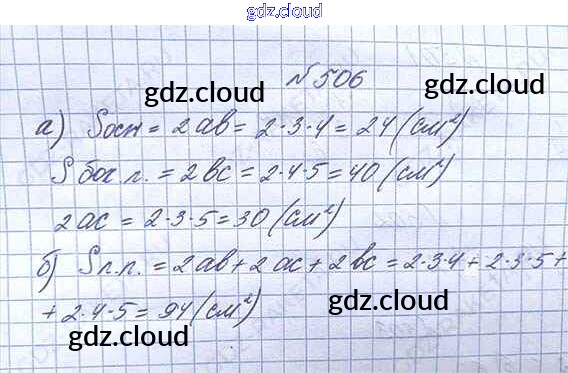 gdz.cloud
№506
gdz.cloud gdz.cloud
а) Sосн = 2ab = 2·3·4 = 24 (см²)
S бок.п. = 2bc = 2·4·5 = 40 (см²)
gdz.cloud gdz.cloud
2ac = 2·3·5 = 30 (см²)
б) Sп.п. = 2ab + 2ac + 2bc = 2·3·4 + 2·3·5 +
+ 2·4·5 = 94 (см²)
gdz.cloud
gdz.cloud